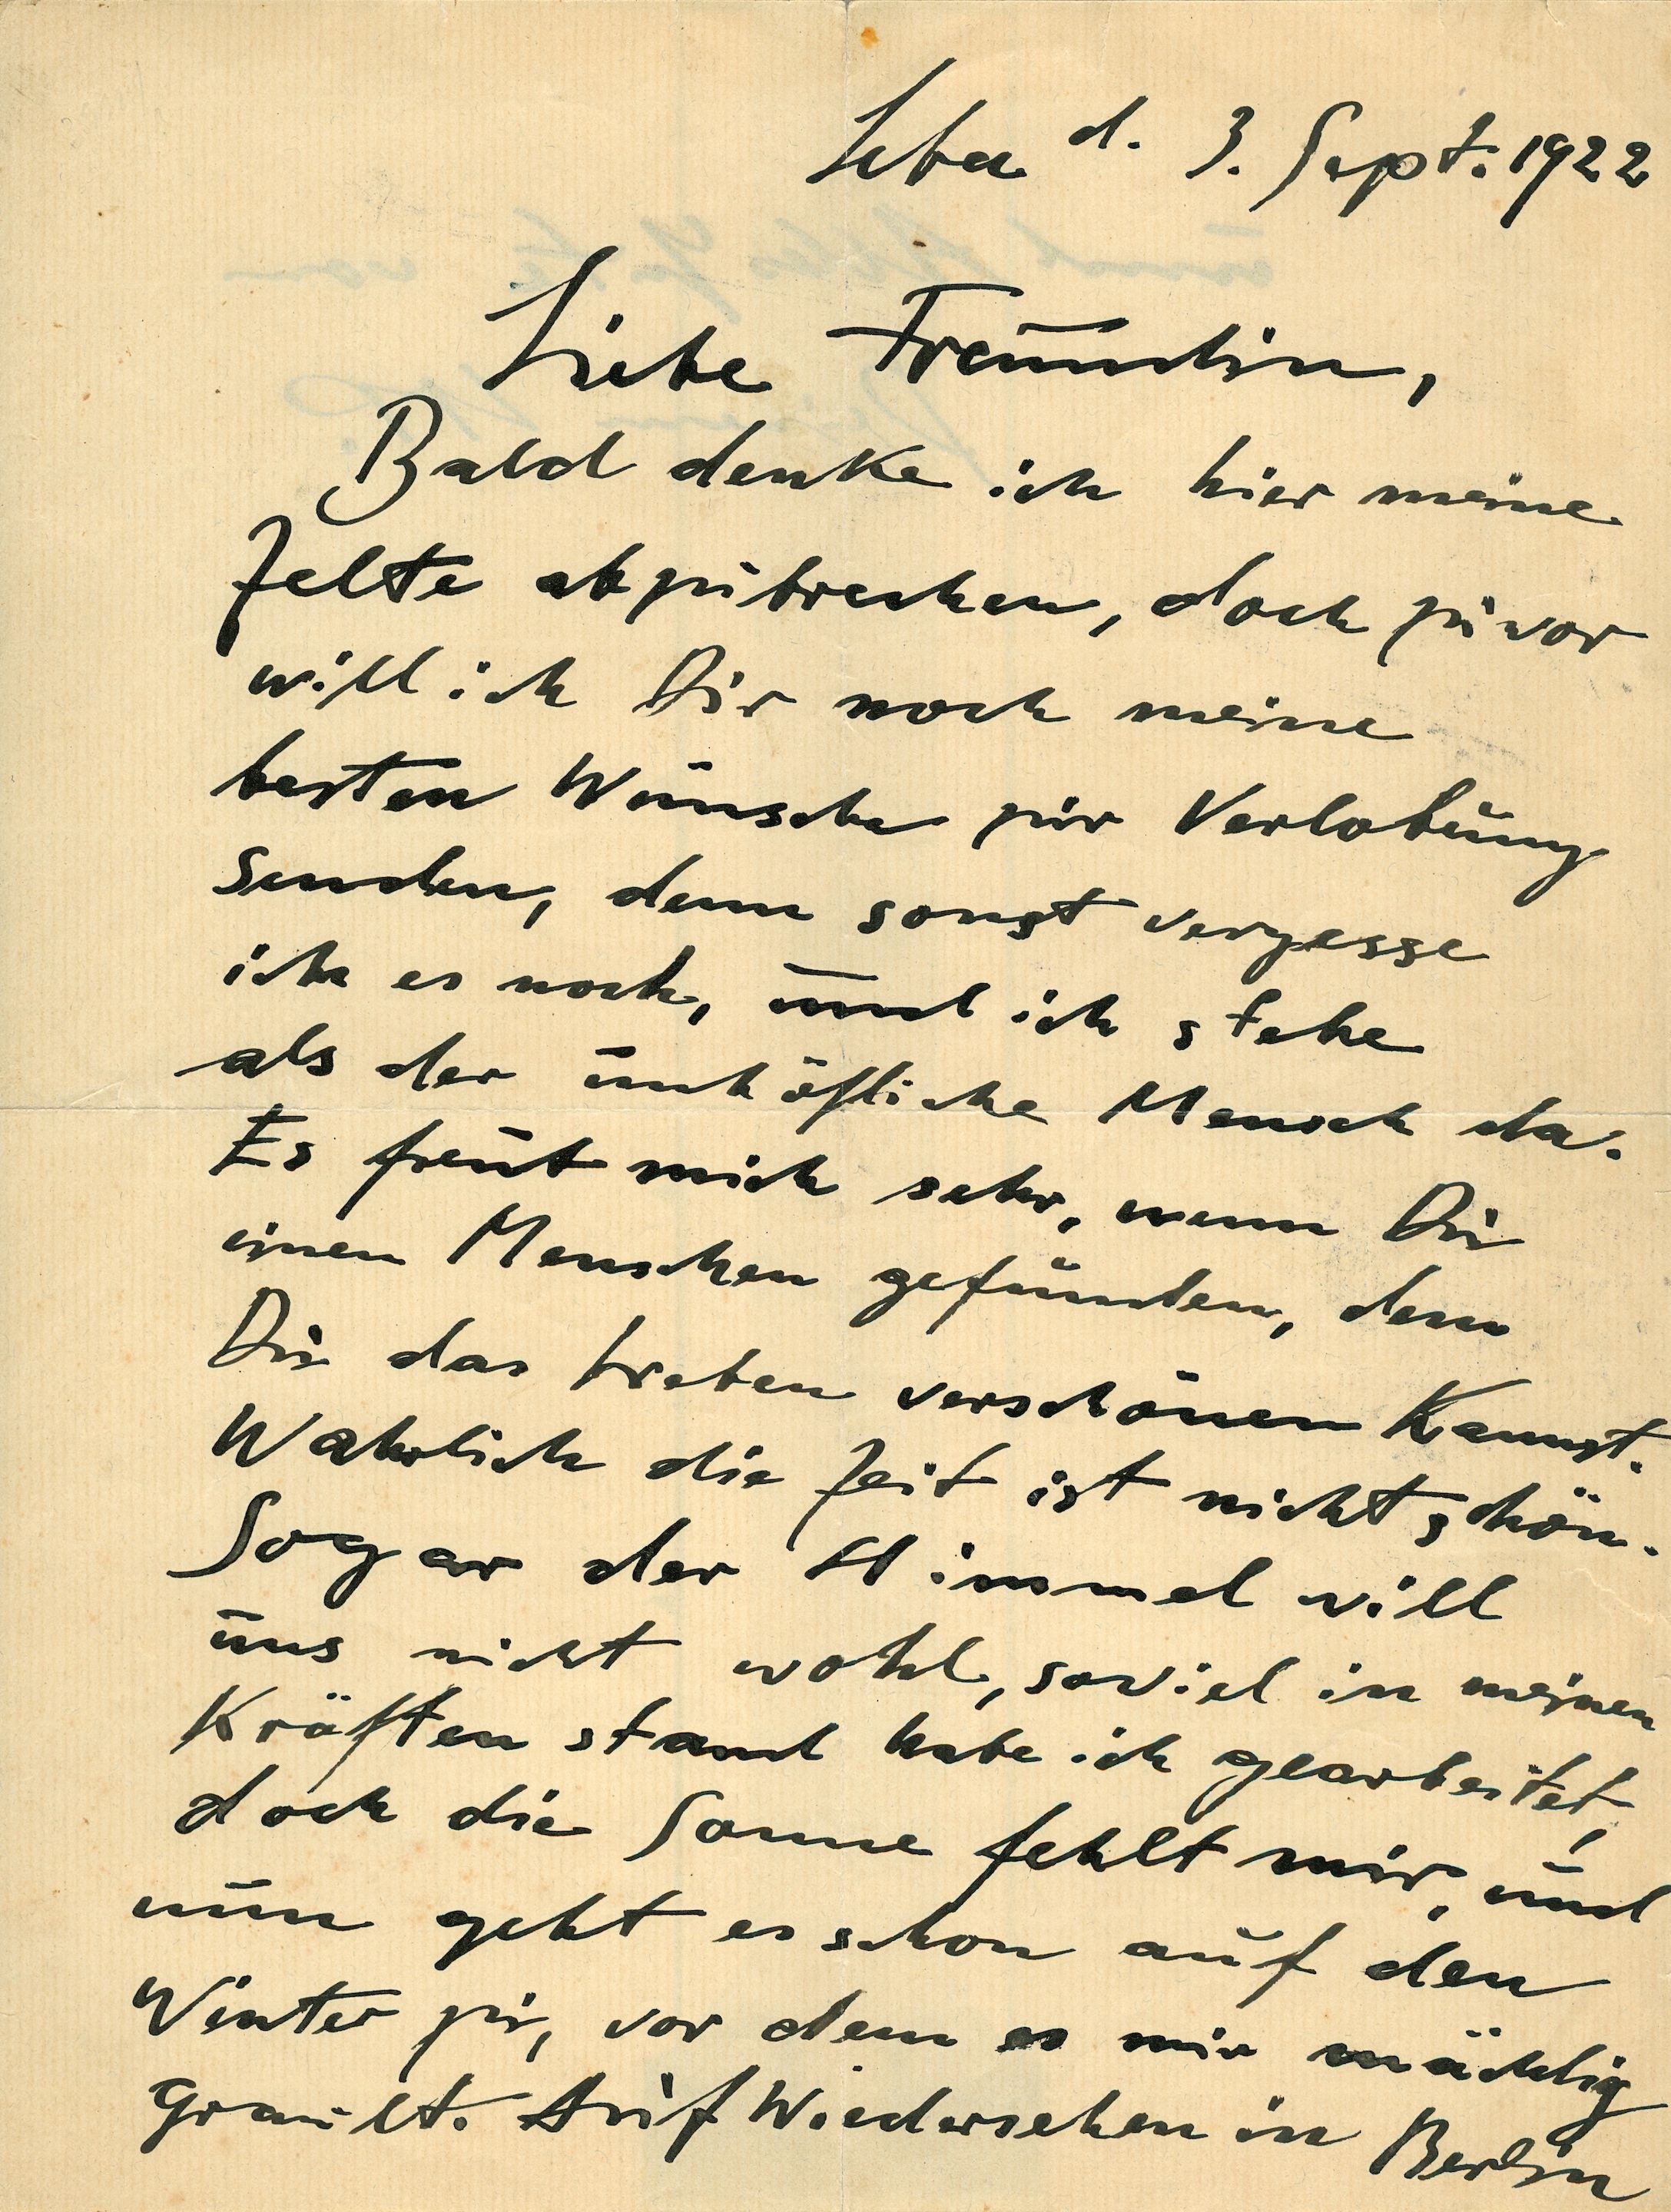 Leba d. 3. Sept. 1922
Liebe Freundin,
Bald denke ich hier meine
Zelte abzubrechen, doch zuvor
will ich Dir noch meine
besten Wünsche zur Verlobung
senden, denn sonst vergesse
ich es noch, und ich stehe
als der unhöfliche Mensch da.
Es freut mich sehr, wenn Du
einen Menschen gefunden, dem
Du das Leben verschönen kannst.
Wahrlich die Zeit ist nicht schön.
Sogar der Himmel will
uns nicht wohl, soviel in meinen
Kräften stand habe ich gearbeitet,
doch die Sonne fehlt mir, und
nun geht es schon auf den
Winter zu, vor dem es mir mächtig
grault. Auf Wiedersehen in Berlin